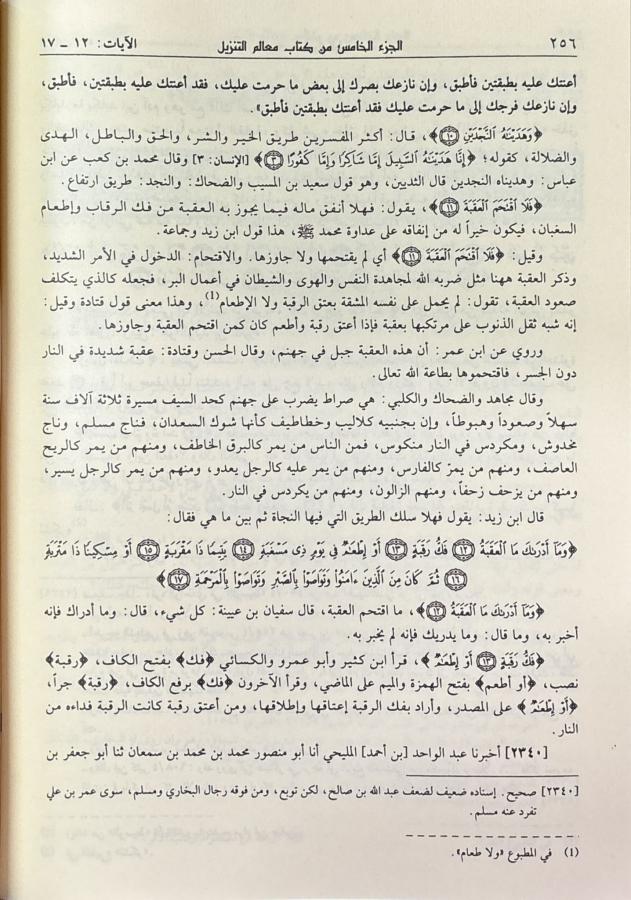 ٢٥٦ الجزء الخامس من كتاب معالم التنزيل الآيات: ١٢ - ١٧
أعنتك عليه بطبقتين فأطبق، وإن نازعك بصرك إلى بعض ما حرمت عليك، فقد أعنتك عليه بطبقتين، فأطبق،
وإن نازعك فرجك إلى ما حرمت عليك فقد أعنتك بطبقتين فأطبق».
﴿وَهَدَيْنَٰهُ ٱلنَّجْدَيْنِ ﴿١٠﴾﴾، قال: أكثر المفسرين طريق الخير والشر، والحق والباطل، الهدى
والضلالة، كقوله؛ ﴿إِنَّا هَدَيْنَٰهُ ٱلسَّبِيلَ إِمَّا شَاكِرًا وَإِمَّا كَفُورًا ﴿٣﴾﴾ [الإنسان: ٣] وقال محمد بن كعب عن ابن
عباس: وهديناه النجدين قال الثديين، وهو قول سعيد بن المسيب والضحاك: والنجد: طريق ارتفاع.
﴿فَلَا ٱقْتَحَمَ ٱلْعَقَبَةَ ﴿١١﴾﴾، يقول: فهلا أنفق ماله فيما يجوز به العقبة من فك الرقاب وإطعام
السغبان، فيكون خيراً له من إنفاقه على عداوة محمد ﷺ، هذا قول ابن زيد وجماعة.
وقيل: ﴿فَلَا ٱقْتَحَمَ ٱلْعَقَبَةَ ﴿١١﴾﴾ أي لم يقتحمها ولا جاوزها. والاقتحام: الدخول في الأمر الشديد،
وذكر العقبة ههنا مثل ضربه الله لمجاهدة النفس والهوى والشيطان في أعمال البر، فجعله كالذي يتكلف
صعود العقبة، تقول: لم يحمل على نفسه المشقة بعتق الرقبة ولا الإطعام(1)، وهذا معنى قول قتادة وقيل:
إنه شبه ثقل الذنوب على مرتكبها بعقبة فإذا أعتق رقبة وأطعم كان كمن اقتحم العقبة وجاوزها.
وروي عن ابن عمر: أن هذه العقبة جبل في جهنم، وقال الحسن وقتادة: عقبة شديدة في النار
دون الجسر، فاقتحموها بطاعة الله تعالى.
وقال مجاهد والضحاك والكلبي: هي صراط يضرب على جهنم كحد السيف مسيرة ثلاثة آلاف سنة
سهلاً وصعوداً وهبوطاً، وإن بجنبيه كلاليب وخطاطيف كأنها شوك السعدان، فناج مسلم، وناج
مخدوش، ومكردس في النار منكوس، فمن الناس من يمر كالبرق الخاطف، ومنهم من يمر كالريح
العاصف، ومنهم من يمرّ كالفارس، ومنهم من يمر عليه كالرجل يعدو، ومنهم من يمر كالرجل يسير،
ومنهم من يزحف زحفاً، ومنهم الزالون، ومنهم من يكردس في النار.
قال ابن زيد: يقول فهلا سلك الطريق التي فيها النجاة ثم بين ما هي فقال:
﴿وَمَآ أَدْرَىٰكَ مَا ٱلْعَقَبَةُ ﴿١٢﴾ فَكُّ رَقَبَةٍ ﴿١٣﴾ أَوْ إِطْعَٰمٌ فِى يَوْمٍ ذِى مَسْغَبَةٍ ﴿١٤﴾ يَتِيمًا ذَا مَقْرَبَةٍ ﴿١٥﴾ أَوْ مِسْكِينًا ذَا مَتْرَبَةٍ
﴿١٦﴾ ثُمَّ كَانَ مِنَ ٱلَّذِينَ ءَامَنُوا۟ وَتَوَاصَوْا۟ بِٱلصَّبْرِ وَتَوَاصَوْا۟ بِٱلْمَرْحَمَةِ ﴿١٧﴾﴾
﴿وَمَآ أَدْرَىٰكَ مَا ٱلْعَقَبَةُ ﴿١٢﴾﴾، ما اقتحم العقبة، قال سفيان بن عيينة: كل شيء، قال: وما أدراك فإنه
أخبر به، وما قال: وما يدريك فإنه لم يخبر به.
﴿فَكُّ رَقَبَةٍ ﴿١٣﴾ أَوْ إِطْعَٰمٌ﴾، قرأ ابن كثير وأبو عمرو والكسائي ﴿فك﴾ بفتح الكاف، ﴿رقبة﴾
نصب، ﴿أو أطعم﴾ بفتح الهمزة والميم على الماضي، وقرأ الآخرون ﴿فك﴾ برفع الكاف، ﴿رقبة﴾ جراً،
﴿أَوْ إِطْعَٰمٌ﴾ على المصدر، وأراد بفك الرقبة إعتاقها وإطلاقها، ومن أعتق رقبة كانت الرقبة فداءه من
النار.
[٢٣٤٠] أخبرنا عبد الواحد [بن أحمد] المليحي أنا أبو منصور محمد بن محمد بن سمعان ثنا أبو جعفر بن
[٢٣٤٠] صحيح. إسناده ضعيف لضعف عبد الله بن صالح، لكن توبع، ومن فوقه رجال البخاري ومسلم، سوى عمر بن علي
تفرد عنه مسلم.
(1) في المطبوع «ولا طعام».